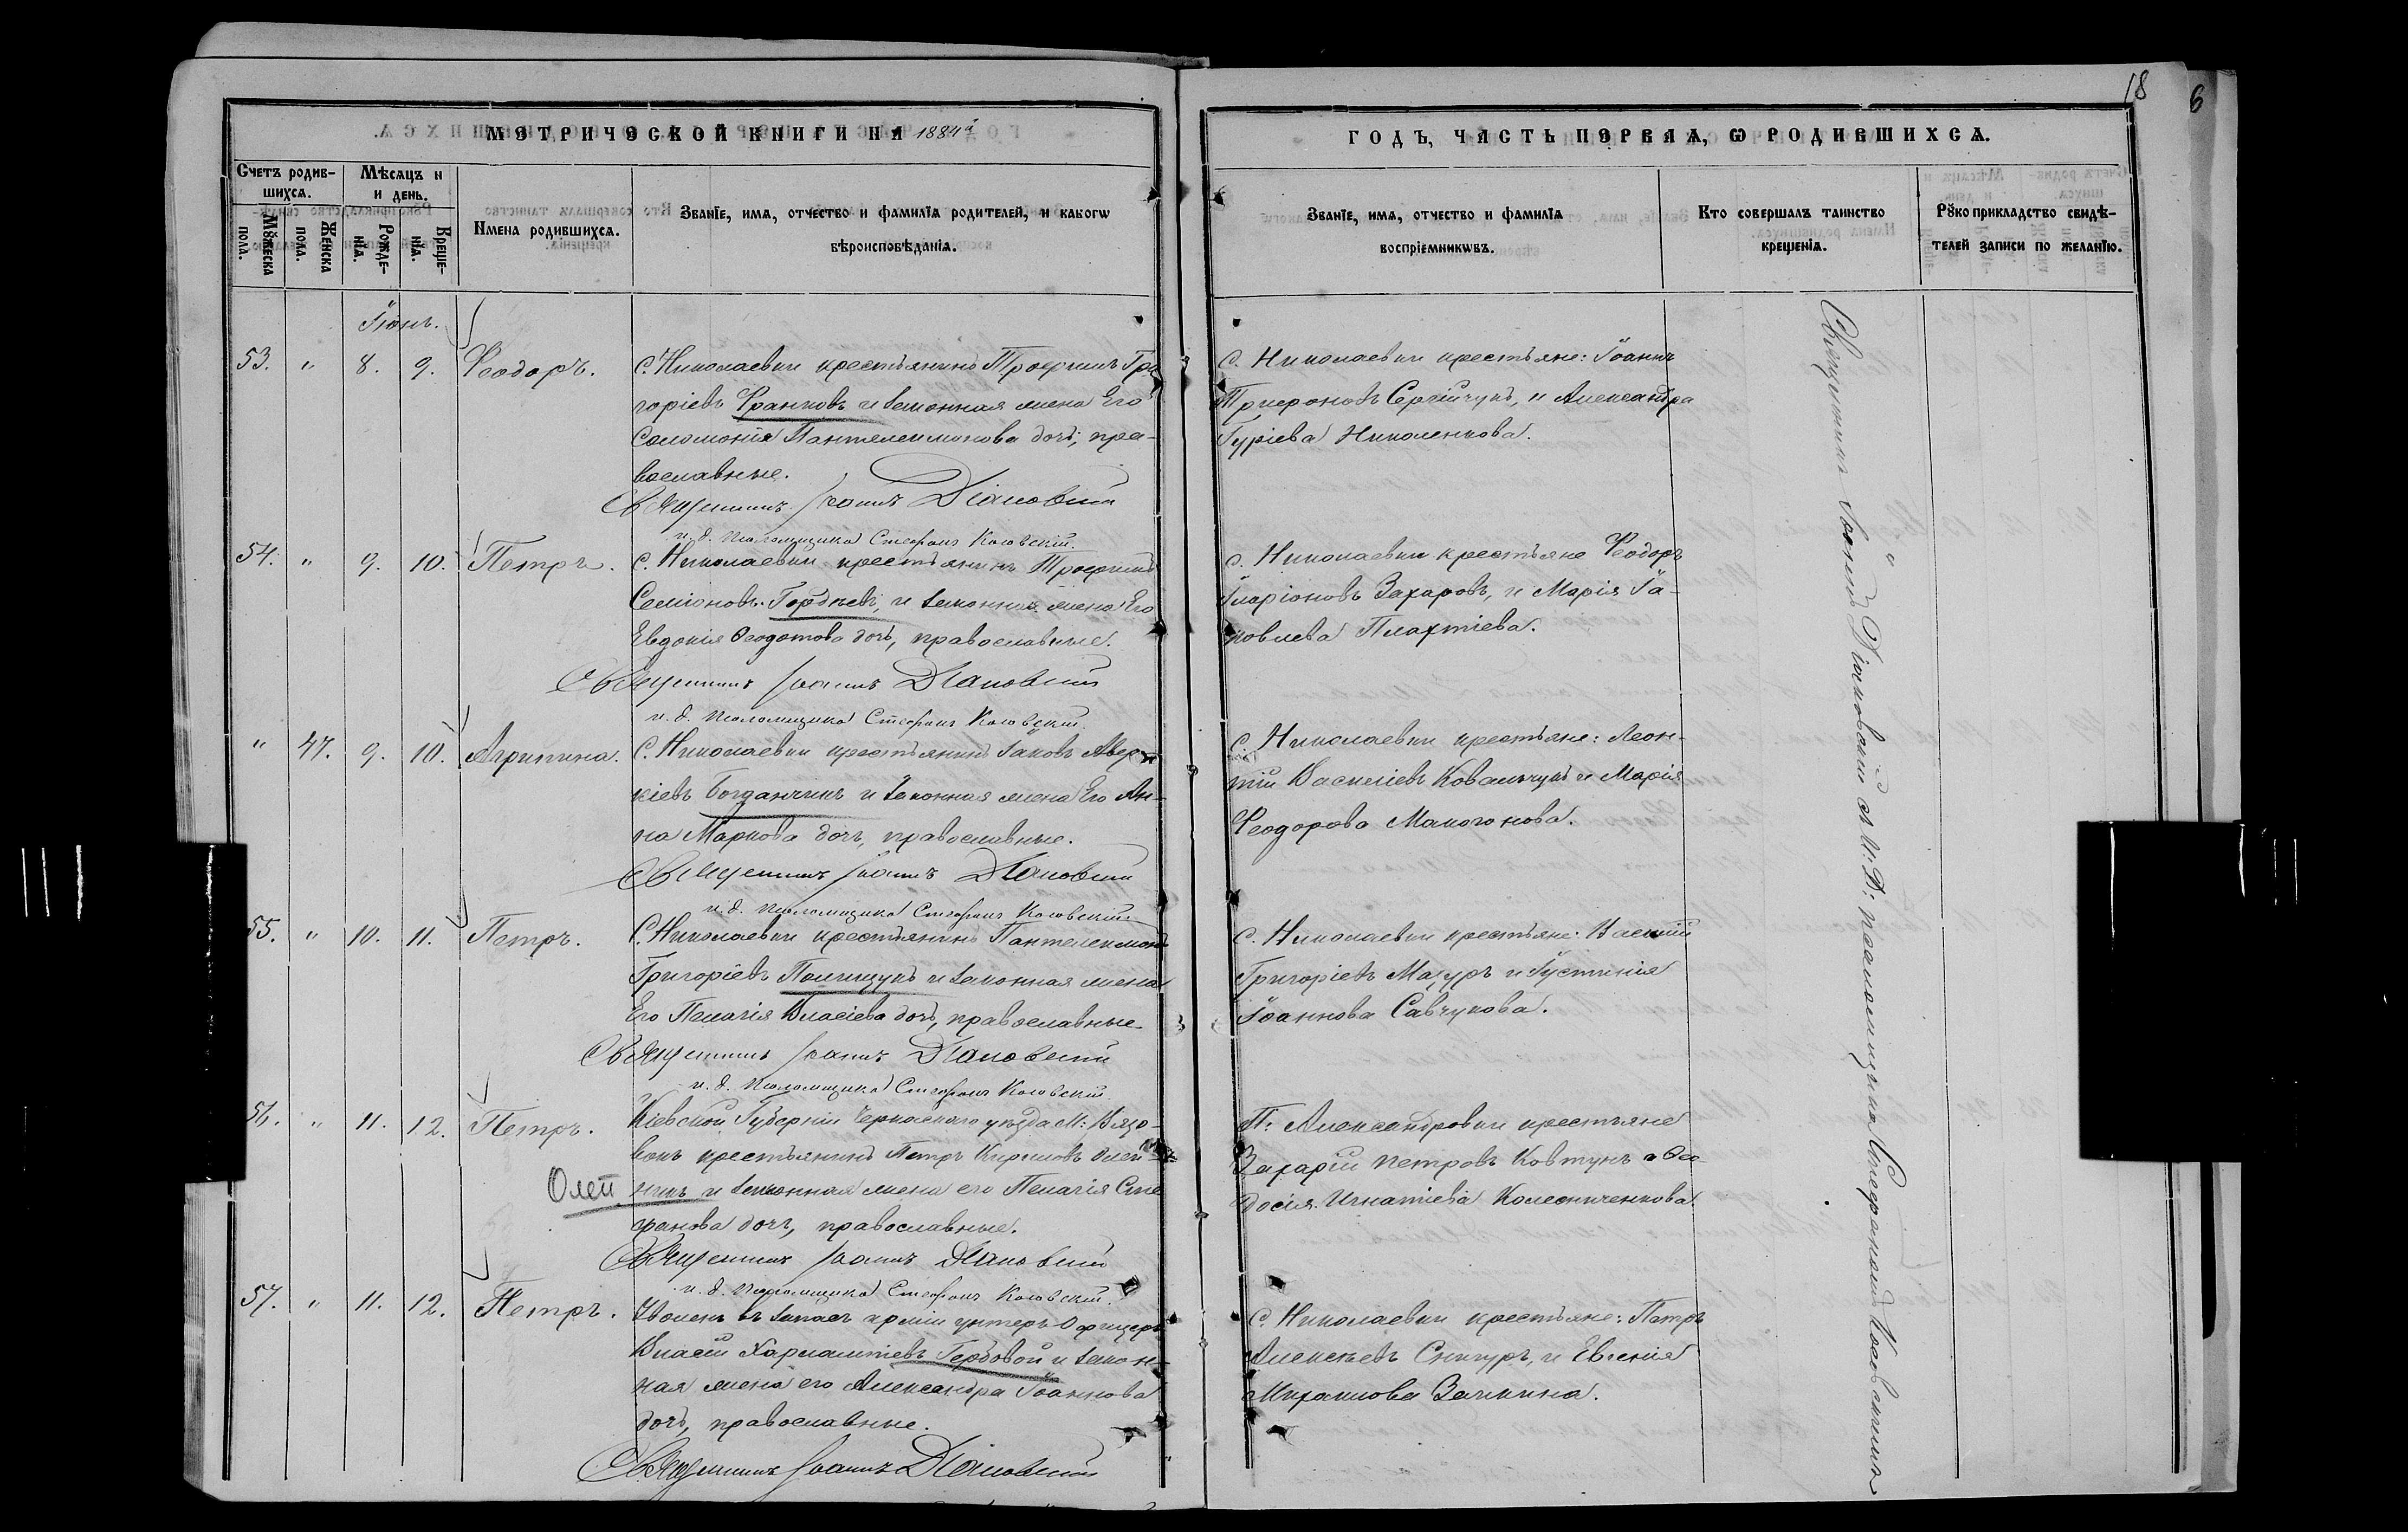 18
6
МЭТРИЧЭСКОЙ КНИГИ НА 1884й
ГОДЪ, ЧАСТЬ ПЭРВАЯ, Ѡ РОДИВШИХСѦ.
Счетъ родив-
шихсѧ.
Мꙋжеска
пола.
Женска
пола.
Мѣсѧцъ и
и день.
Рожде-
нїѧ.
Креще-
нїѧ.
Имена родившихсѧ.
Званїе, имѧ, отчество и фамилїѧ родителей, и какогѡ
вѣроисповѣданїѧ.
Званїе, имѧ, отчество и фамилїѧ
воспрїемникѡвъ.
Кто совершалъ таинство
крещенїѧ.
Рꙋкоприкладство свидѣ-
телей записи по желанїю.
Іюнь.
53. " 8. 9. Ѳеодоръ.
С. Николаевки крестьянинъ Трофимъ Гри
горіевъ Франковъ и законная жена Его
Соломонія Пантелеимонова дочь, пра-
вославные.
Священникъ Іоаннъ Діаковскій
и. д. псаломщика Стефанъ Коговскій.
с. Николаевки крестьяне: Іоаннъ
Трифоновъ Сергійчукъ, и Александра
Гуріева Николенкова.
54. " 9. 10. Петръ.
С. Николаевки крестьянинъ Трофимъ
Семіоновъ Гордѣевъ, и законная жена Его
Евдокія Ѳеодотова дочь, православные.
Священникъ Іоаннъ Діаковскій
и. д. псаломщика Стефанъ Коговскій.
с. Николаевки крестьяне Ѳеодоръ
Иларіоновъ Захаровъ, и Марія Іа-
ковлева Плахтіева.
" 47. 9. 10. Агрипина.
С. Николаевки крестьянинъ Іаковъ Авер-
кіевъ Богданчикъ и законная жена Его Ан-
на Маркова дочь, православные.
Священникъ Іоаннъ Діаковскій
и. д. псаломщика Стефанъ Коговскій.
С. Николаевки крестьяне: Леон-
тій Василіевъ Ковальчукъ и Марія
Ѳеодорова Макогонова.
55. " 10. 11. Петръ.
С. Николаевки крестьянинъ Пантелеимонъ
Григоріевъ Полищукъ и законная жена
Его Пелагія Власіева дочь, православные.
Священникъ Іоаннъ Діаковскій
и. д. псаломщика Стефанъ Коговскій.
с. Николаевки крестьяне: Василій
Григоріевъ Мазуръ и Іустинія
Іоаннова Савчукова.
56. " 11. 12. Петръ.
Кіевской Губерніи Черкаскаго уѣзда М: Вязо-
вокъ крестьянинъ Петръ Кириловъ Олей
Олей никъ и законная жена его Пелагія Сте
фанова дочь, православные.
Священникъ Іоаннъ Діаковскій
и. д. псаломщика Стефанъ Коговскій.
П: Александровки крестьяне
Захарій Петровъ Ковтунъ и Ѳео-
досія Игнатіева Колесниченкова.
57. " 11. 12. Петръ.
Уволен. въ запасъ арміи унтеръ-Офицеръ
Власій Харлампіевъ Гербовой и закон-
ная жена его Александра Іоаннова
дочь, православные.
Священникъ Іоаннъ Діаковскій
С. Николаевки крестьяне: Петръ
Алексѣевъ Снигуръ, и Евгенія
Михаилова Заикина.
Священникъ Іоаннъ Діаковскій съ И: Д: псаломщика Стефаномъ Коговскимъ